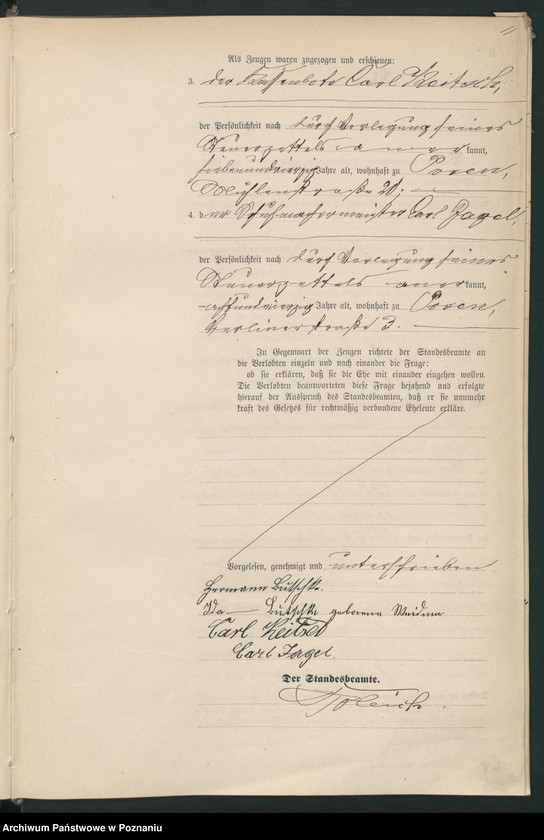 11
Als Zeugen waren zugezogen und erschienen:
3. der Kassenbote Carl
der Persönlichkeit nach durch Vorlegung seines
Steuerzettels anerkannt,
siebenundvierzig Jahre alt, wohnhaft zu Posen,
Mühlenstraße
4. der Schuhmachermeister Carl
der Persönlichkeit nach durch Vorlegung seines
Steuerzettels anerkannt,
achtundvierzig Jahre alt, wohnhaft zu Posen,
Berlinerstraße 3.
In Gegenwart der Zeugen richtete der Standesbeamte an
die Verlobten einzeln und nach einander die Frage:
ob sie erklären, daß sie die Ehe mit einander eingehen wollen.
Die Verlobten beantworteten diese Frage bejahend und erfolgte
hierauf der Ausspruch des Standesbeamten, daß er sie nunmehr
kraft des Gesetzes für rechtmäßig verbundene Eheleute erkläre.
Vorgelesen, genehmigt und unterschrieben
Hermann Butschke.
Ida Butschke geborene
Carl
Carl
Der Standesbeamte.
Archiwum Państwowe w Poznaniu